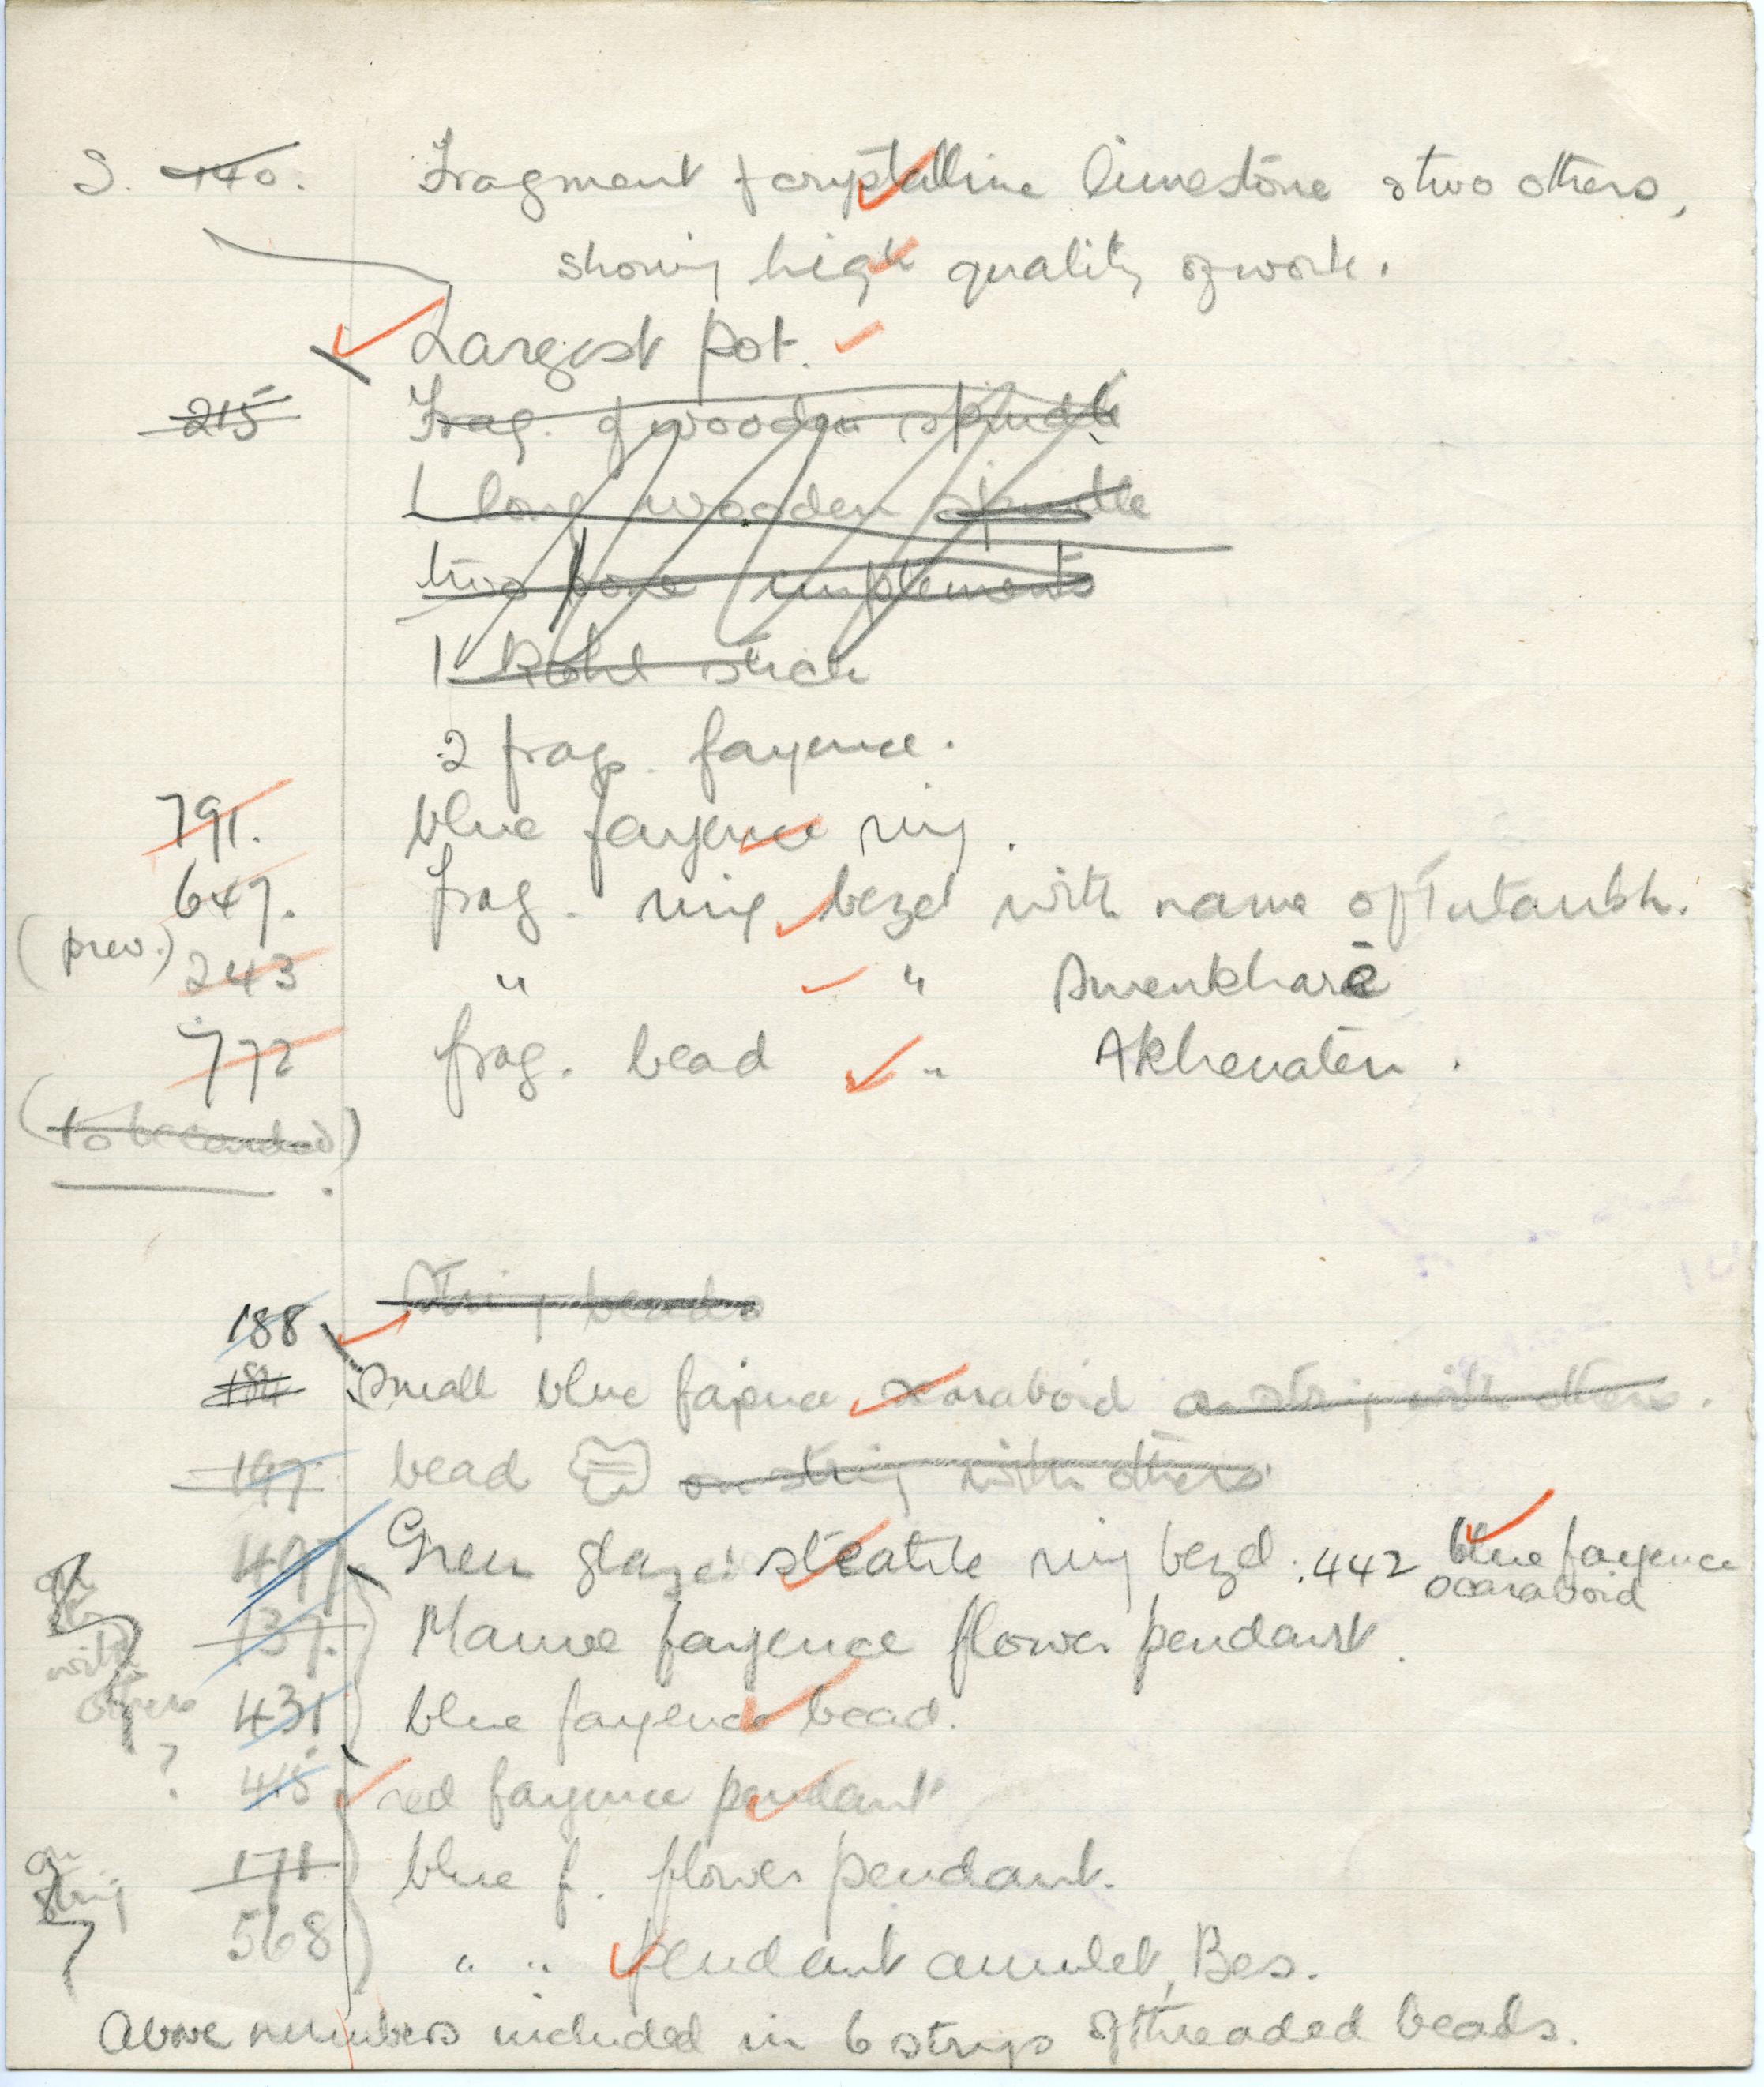 S. 140. Fragment of crystalline limestone & two others,
showing high quality of work.
Largest pot.
215 Frag. of wooden spindle
1 long wooden spindle
two bone implements
1 kohl stick
2 frags. fayence.
791. blue fayence ring.
647. frag. ring bezel with name of Tutankh.
(prev.) 243 " " Smenkharē
772 frag. bead " Akhenaten.
(to be sended)
String beads
188
184 Small blue faience scaraboid on string with others.
197. bead on string with others
497 Green glazed steatite ring bezel. 442 blue fayence
scaraboid
137. Mauve fayence flower pendant.
with
others 431 blue fayence bead.
? 415 red fayence pendant
on
string 171 blue f. flower pendant.
568 " " pendant amulet, Bes.
Above numbers included in 6 strings of threaded beads.